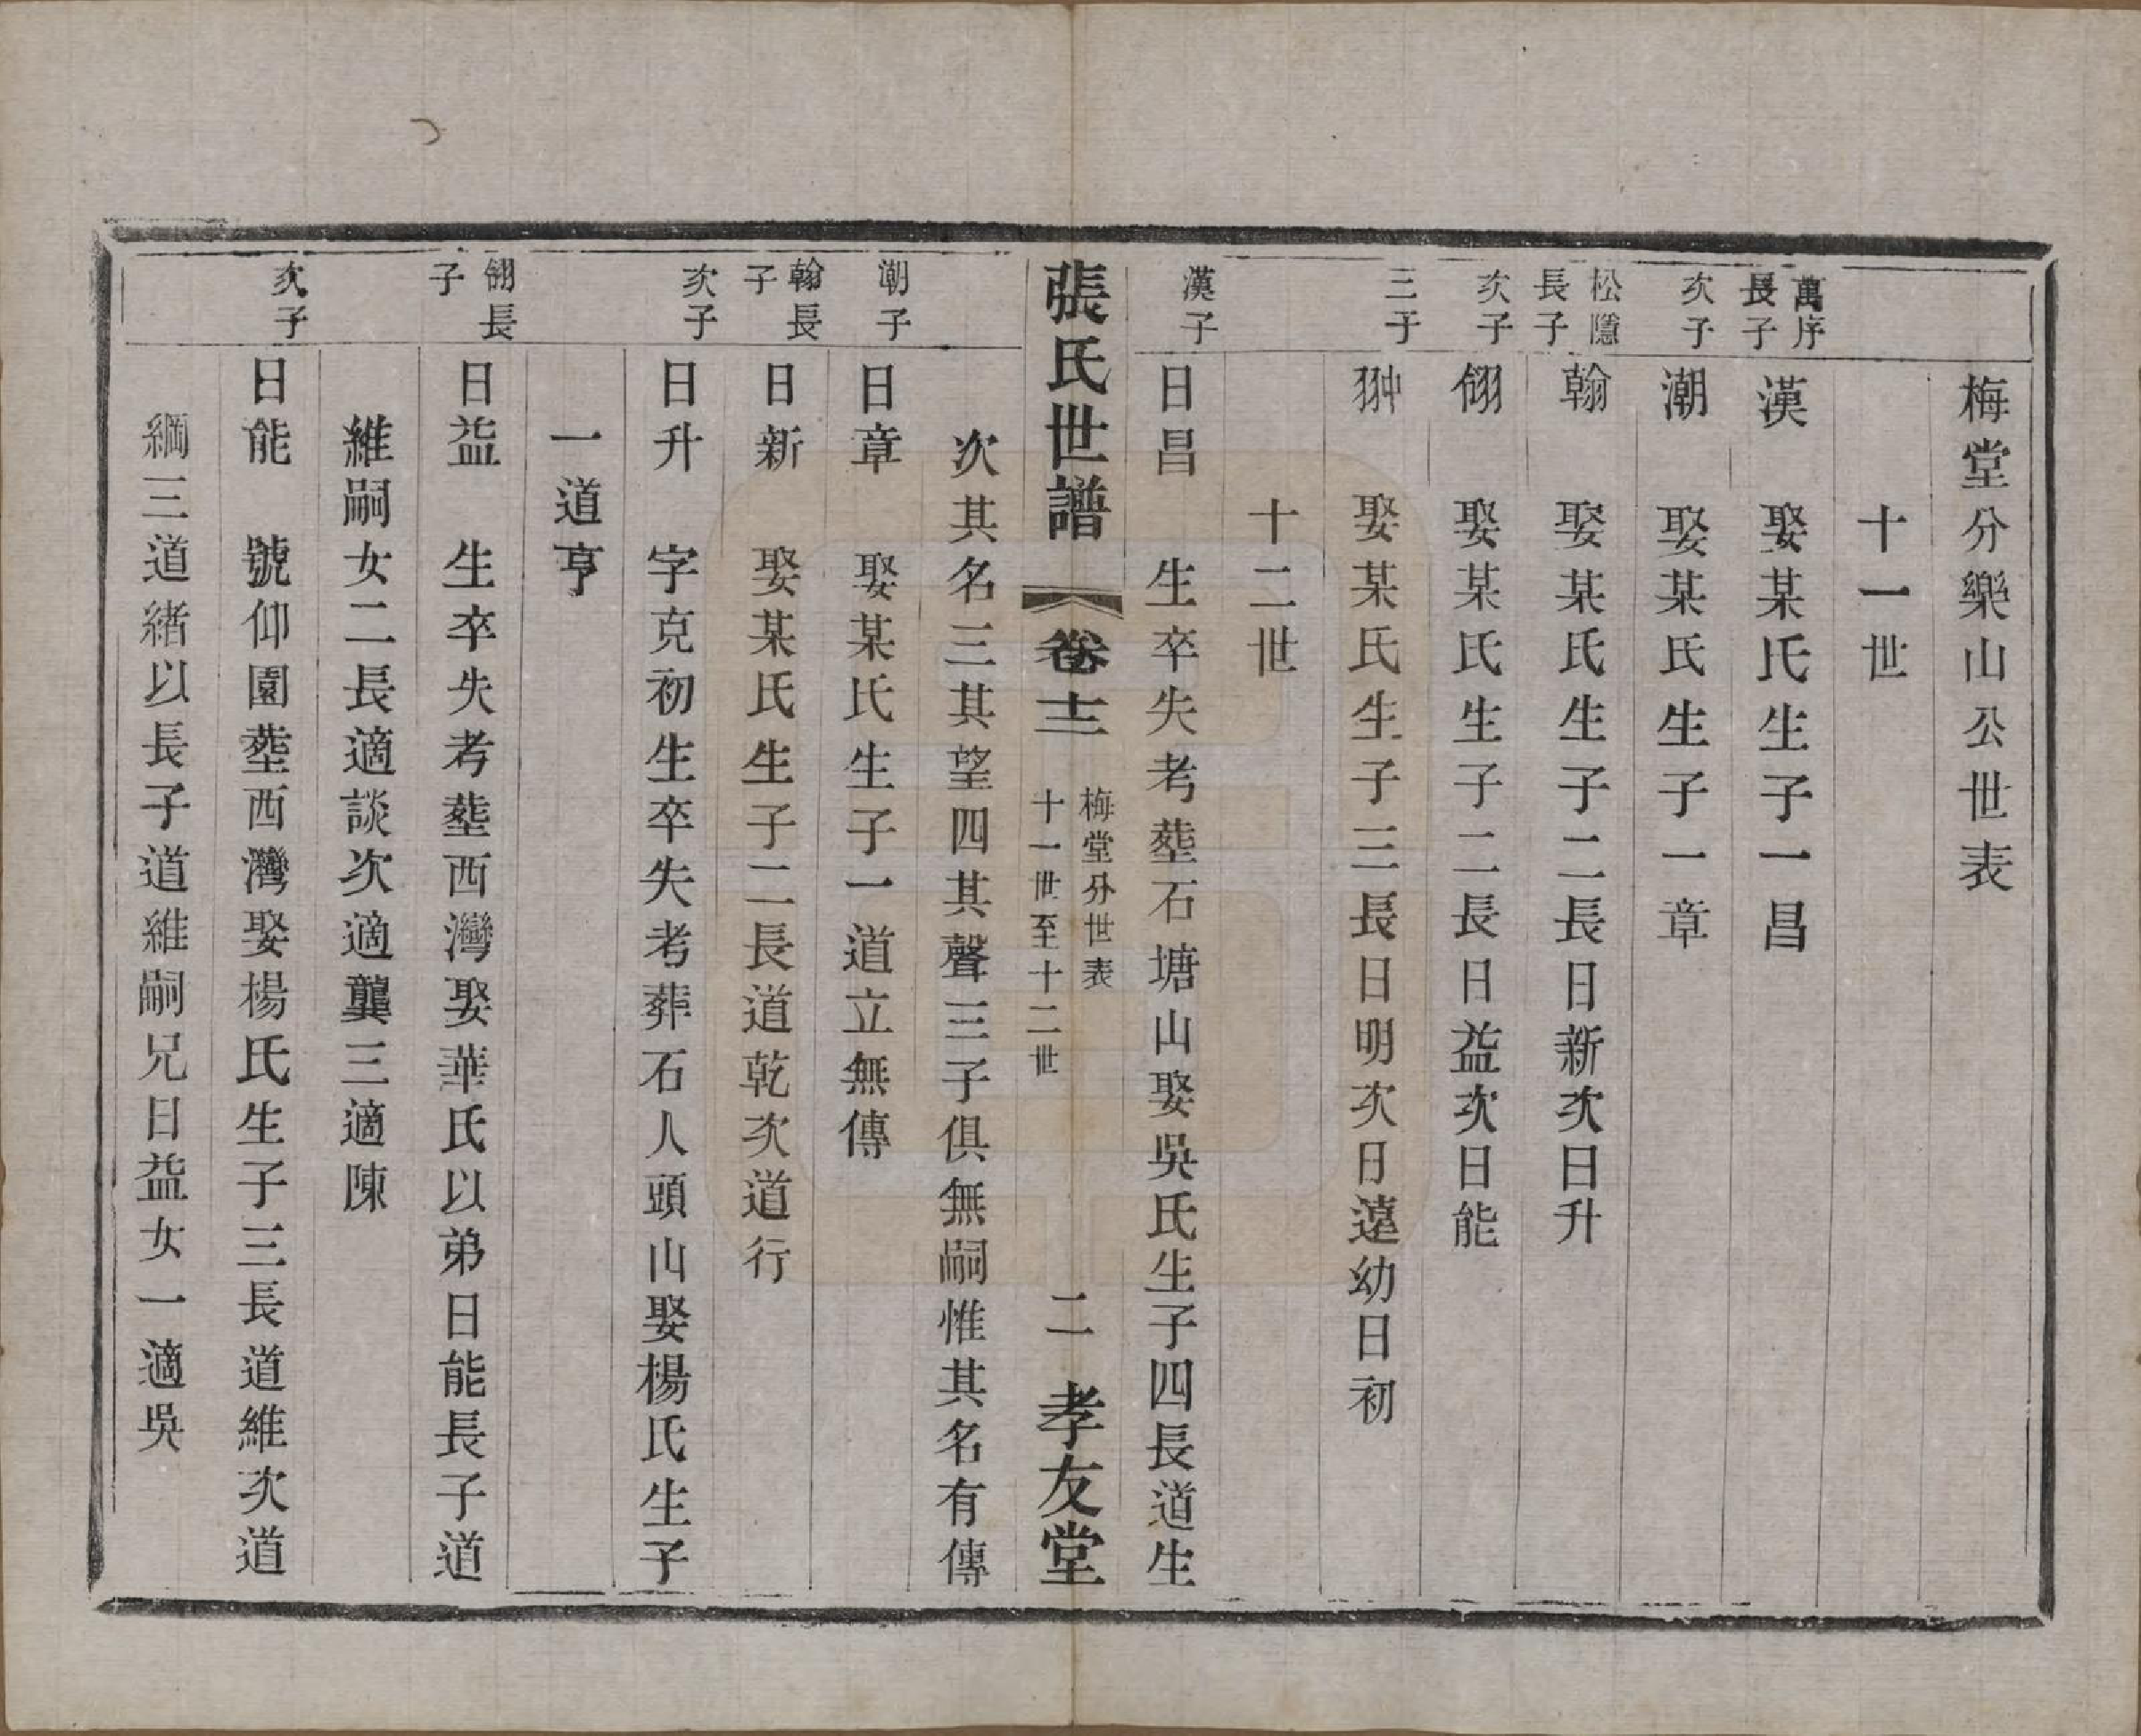 梅堂分樂山公世表
十一世
萬序長子
漢　娶某氏生子一昌
次子
潮　娶某氏生子一章
松隱長子
翰　娶某氏生子二長日新次日升
次子
翎　娶某氏生子二長日益次日能
三子
翀　娶某氏生子三長日明次日遠幼日初
十二世
漢子
日昌　生卒失考塟石塘山娶吳氏生子四長道生
張氏世譜　卷十二　梅堂分世表十一世至十二世　二　孝友堂
次其名三其望四其聲三子俱無嗣惟其名有傳
潮子
日章　娶某氏生子一道立無傳
翰長子
日新　娶某氏生子二長道乾次道行
次子
日升　字克初生卒失考葬石人頭山娶楊氏生子
一道亨
翎長子
日益　生卒失考塟西灣娶華氏以弟日能長子道
維嗣女二長適談次適龔三適陳
次子
日能　號仰園塟西灣娶楊氏生子三長道維次道
綱三道緒以長子道維嗣兄日益女一適吳